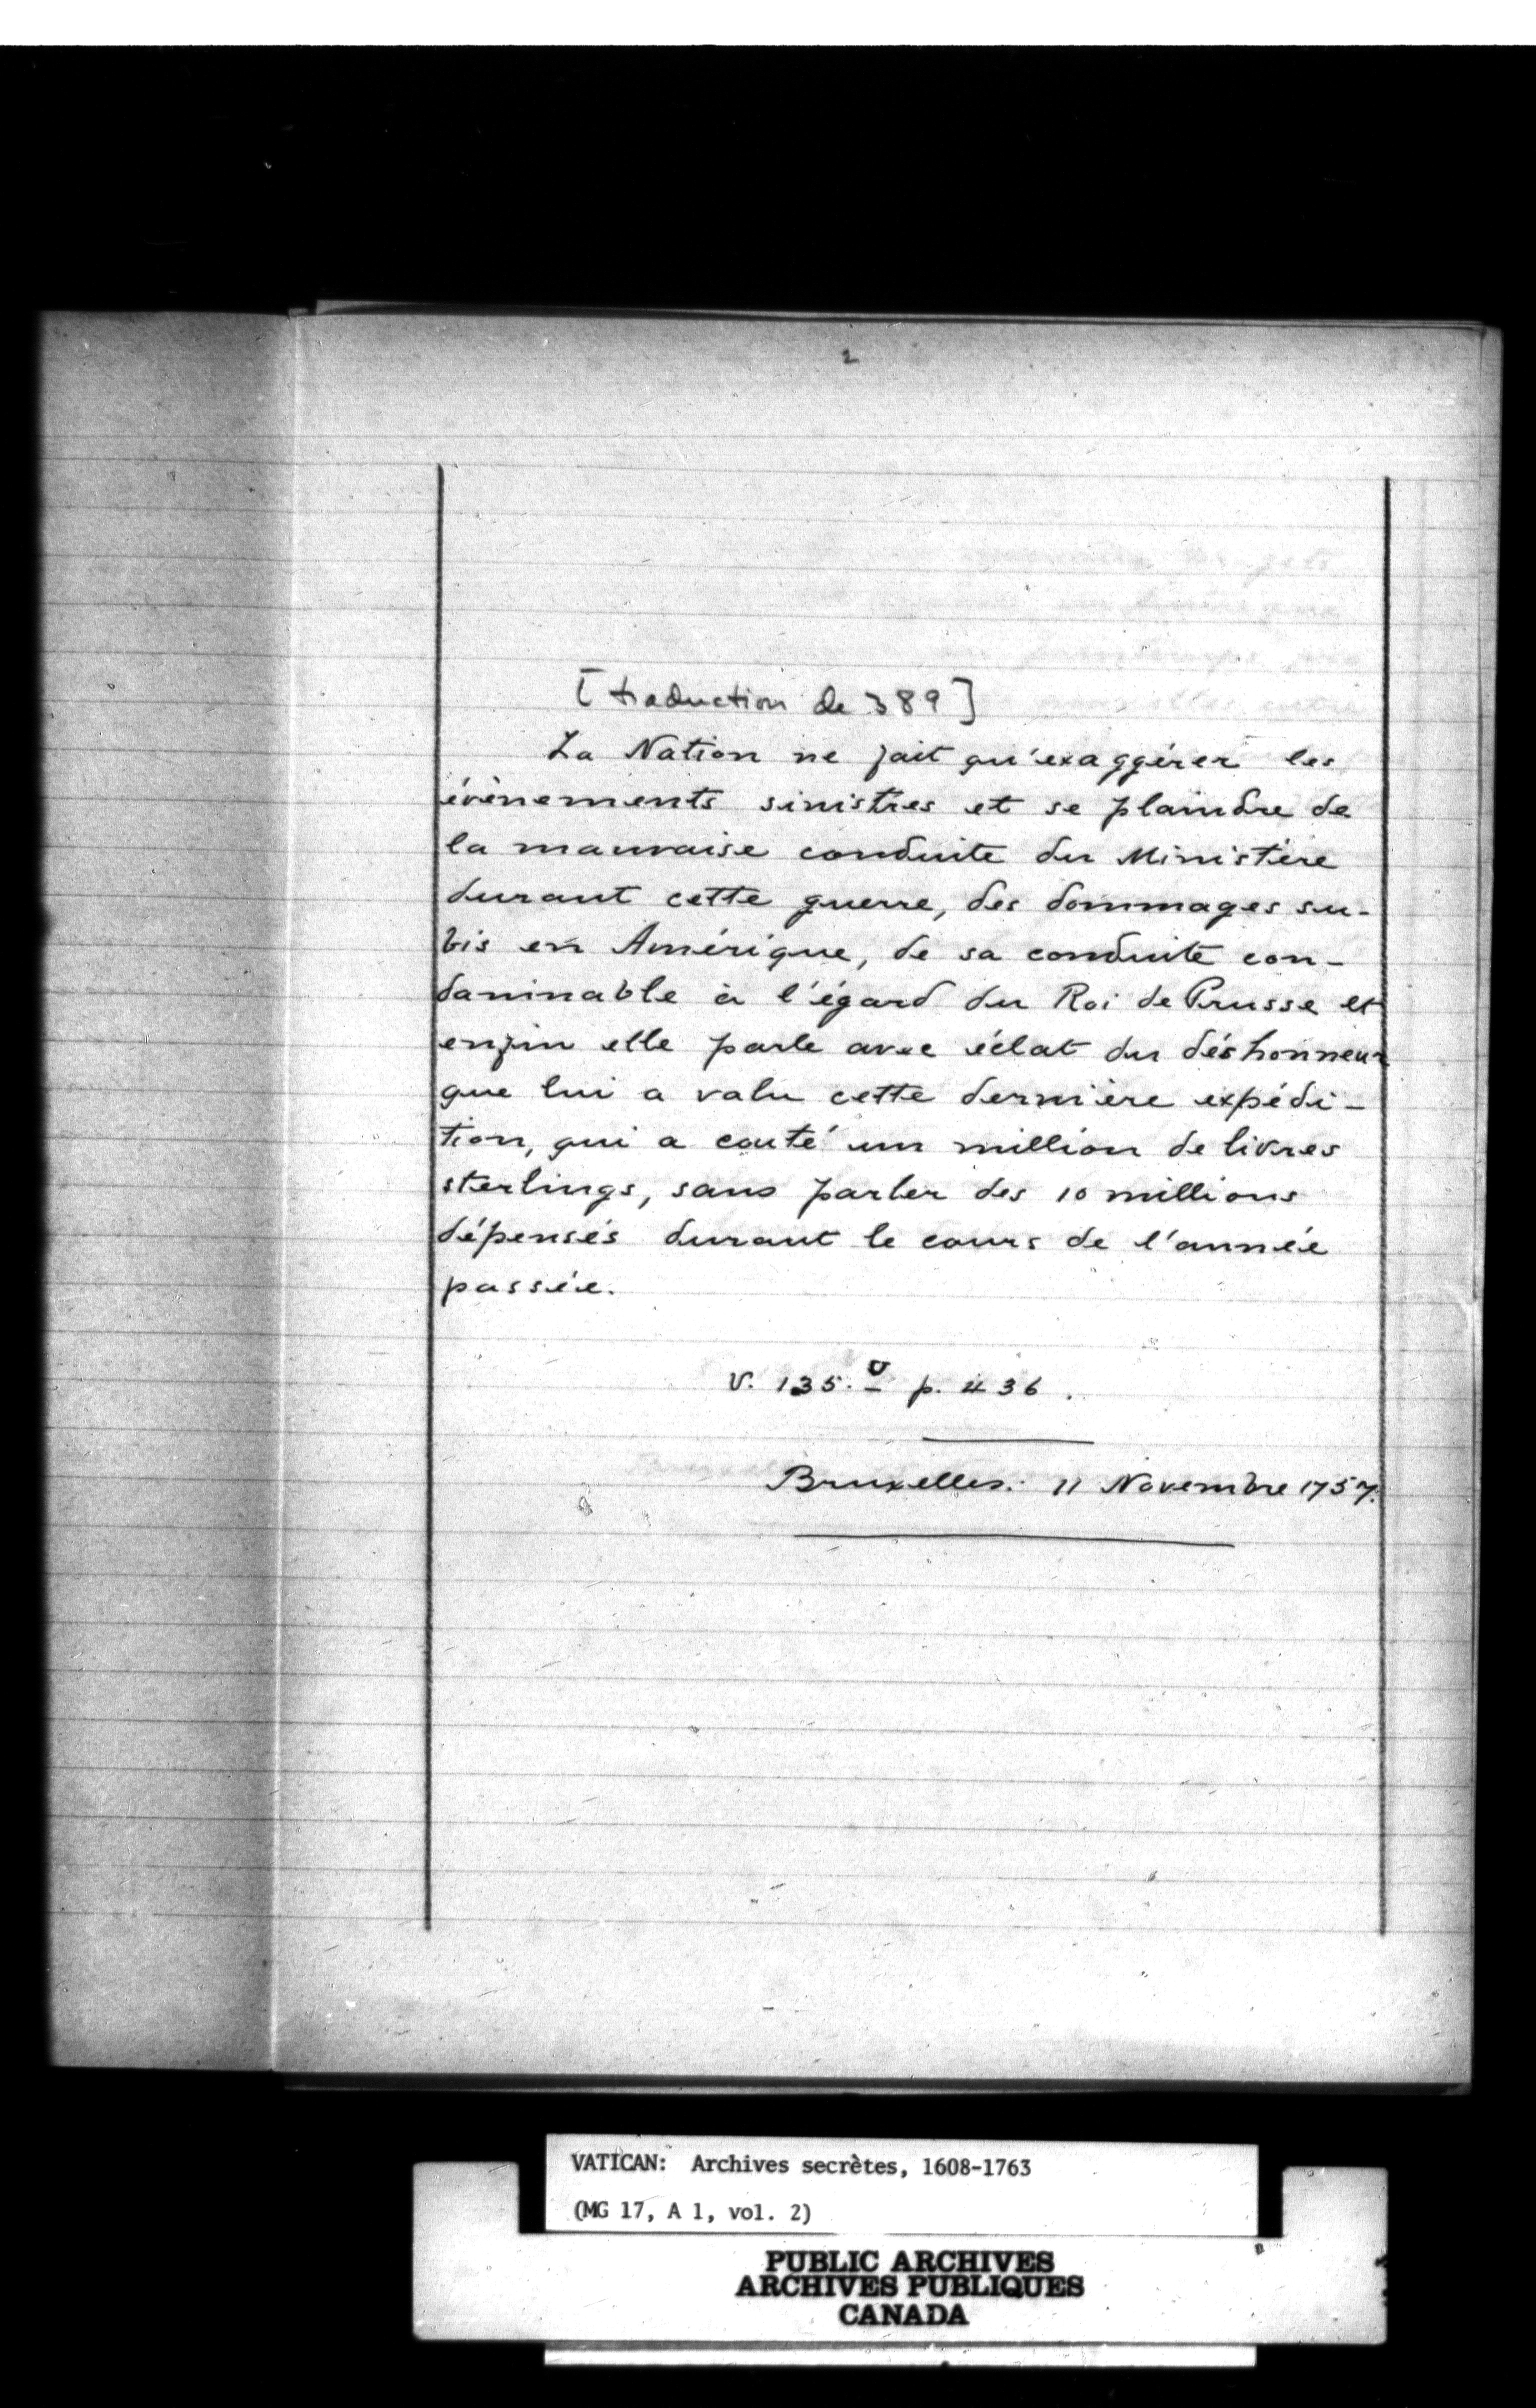 2
[traduction de 389]
La Nation ne fait qu'exaggérer les
évènements sinistres et se plaindre de
la mauvaise conduite du Ministère
durant cette guerre, des dommages su-
bis en Amérique, de sa conduite con-
damnable à l'égard du Roi de Prusse et
enfin elle parle avec éclat du déshonneur
que lui a valu cette dernière expédi-
tion, qui a couté un million de livres
sterlings, sans parler des 10 millions
dépensés durant le cours de l'année
passée.
V. 135. p. 436.
Bruxelles: 11 Novembre 1757.
VATICAN: Archives secrètes, 1608-1763
(MG 17, A 1, vol. 2)
PUBLIC ARCHIVES
ARCHIVES PUBLIQUES
CANADA